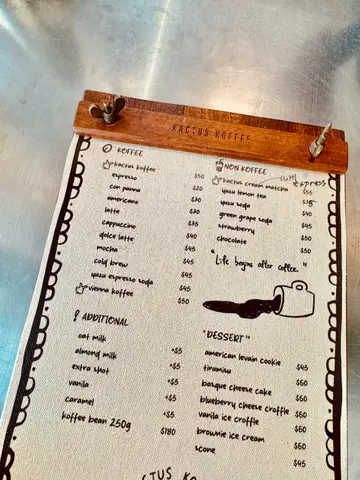 KACTUS KOFFEE
KOFFEE
kactus koffee $50
espresso $20
con panna $30
americano $30
latte $35
cappuccino $35
dolce latte $40
mocha $45
cold brew $45
yuzu espresso soda $45
vienna koffee $50
! ADDITIONAL
oat milk +$5
almond milk +$5
extra shot +$5
vanilla +$5
caramel +$5
koffee bean 250g $180
NON KOFFEE
with espresso
kactus cream matcha $55
yuzu lemon tea
yuzu soda $40
green grape soda $45
strawberry $50
chocolate $50
"Life begins after coffee."
"DESSERT"
american levain cookie $45
tiramisu $60
basque cheese cake $60
blueberry cheese croffle $60
vanilla ice croffle $60
brownie ice cream $60
scone $45